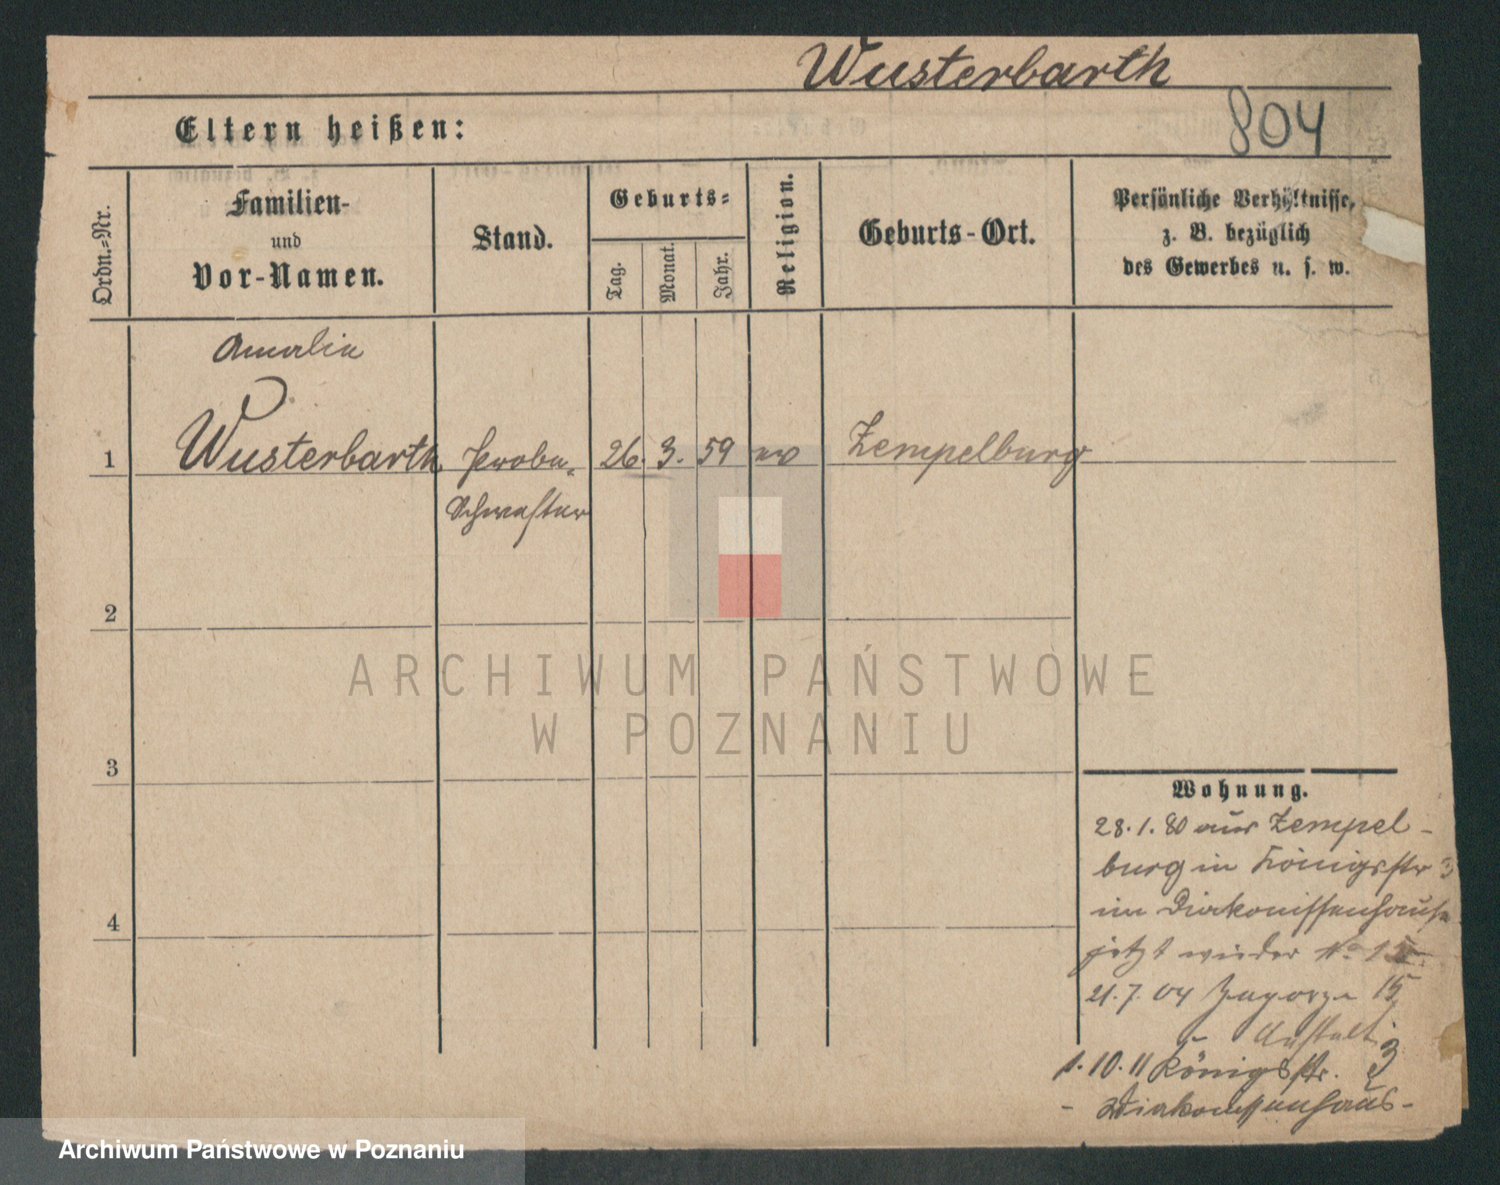 Wusterbarth
804
Eltern heißen:
Ordn.=Nr.
Familien-
und
Vor-Namen.
Stand.
Geburts=
Tag.
Monat.
Jahr.
Religion.
Geburts-Ort.
Persönliche Verhältnisse,
z. B. bezüglich
des Gewerbes u. s. w.
Amalie
1 Wusterbarth Probe- 26. 3. 59 ev Zempelburg
Schwester
2
3
4
Wohnung.
28. 1. 80 aus Zempel-
burg in Königsstr 3
im Diakonissenhause
jetzt wieder No 15
21. 7. 04 Zagorze 15
Anstalt
1. 10. 11 Königsstr. 3
- Diakonissenhaus-
ARCHIWUM PAŃSTWOWE
W POZNANIU
Archiwum Państwowe w Poznaniu